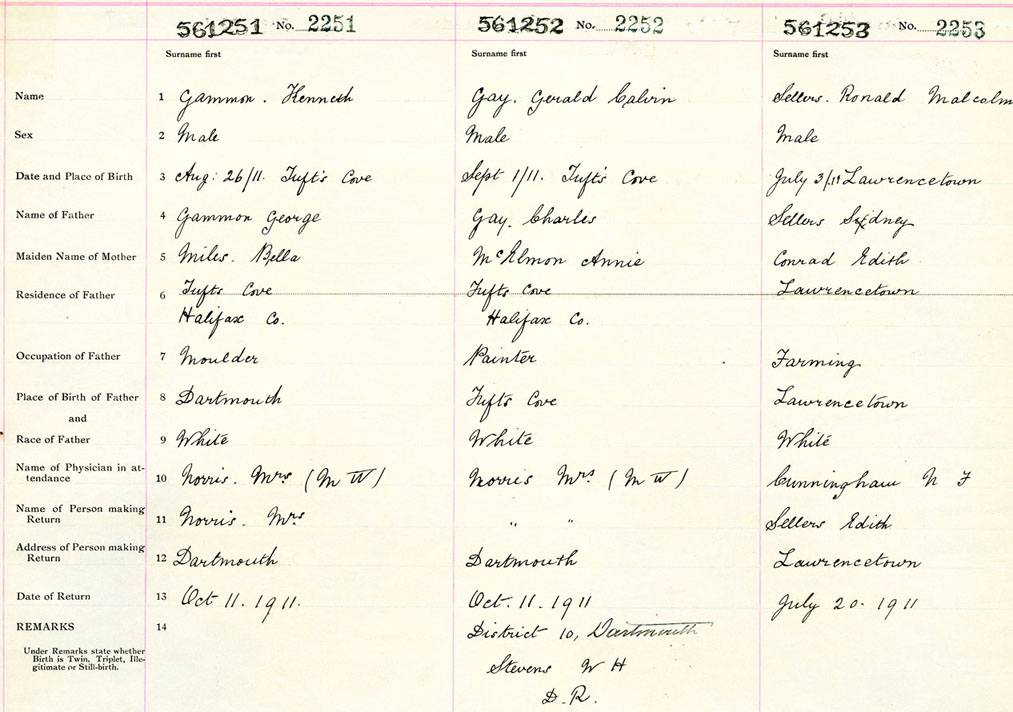 561251 No. 2251 561252 No. 2252 561253 No. 2253
Surname first Surname first Surname first
Name 1 Gammon. Kenneth Gay. Gerald Calvin Sellers. Ronald Malcolm
Sex 2 Male Male Male
Date and Place of Birth 3 Aug: 26/11. Tuft's Cove Sept 1/11. Tuft's Cove July 3/11 Lawrencetown
Name of Father 4 Gammon George Gay. Charles Sellers Sidney
Maiden Name of Mother 5 Miles. Bella McElmon Annie Conrad Edith
Residence of Father 6 Tufts Cove Tufts Cove Lawrencetown
Halifax Co. Halifax Co.
Occupation of Father 7 Moulder Painter Farming
Place of Birth of Father 8 Dartmouth Tufts Cove Lawrencetown
and
Race of Father 9 White White White
Name of Physician in at-
tendance 10 Norris. Mrs (M W) Norris Mrs (M W) Cunningham N F
Name of Person making
Return 11 Norris. Mrs " " Sellers Edith
Address of Person making
Return 12 Dartmouth Dartmouth Lawrencetown
Date of Return 13 Oct 11. 1911. Oct. 11. 1911 July 20. 1911
REMARKS 14 District 10, Dartmouth
Under Remarks state whether
Birth is Twin, Triplet, Ille-
gitimate or Still-birth.
Stevens W H
D.R.